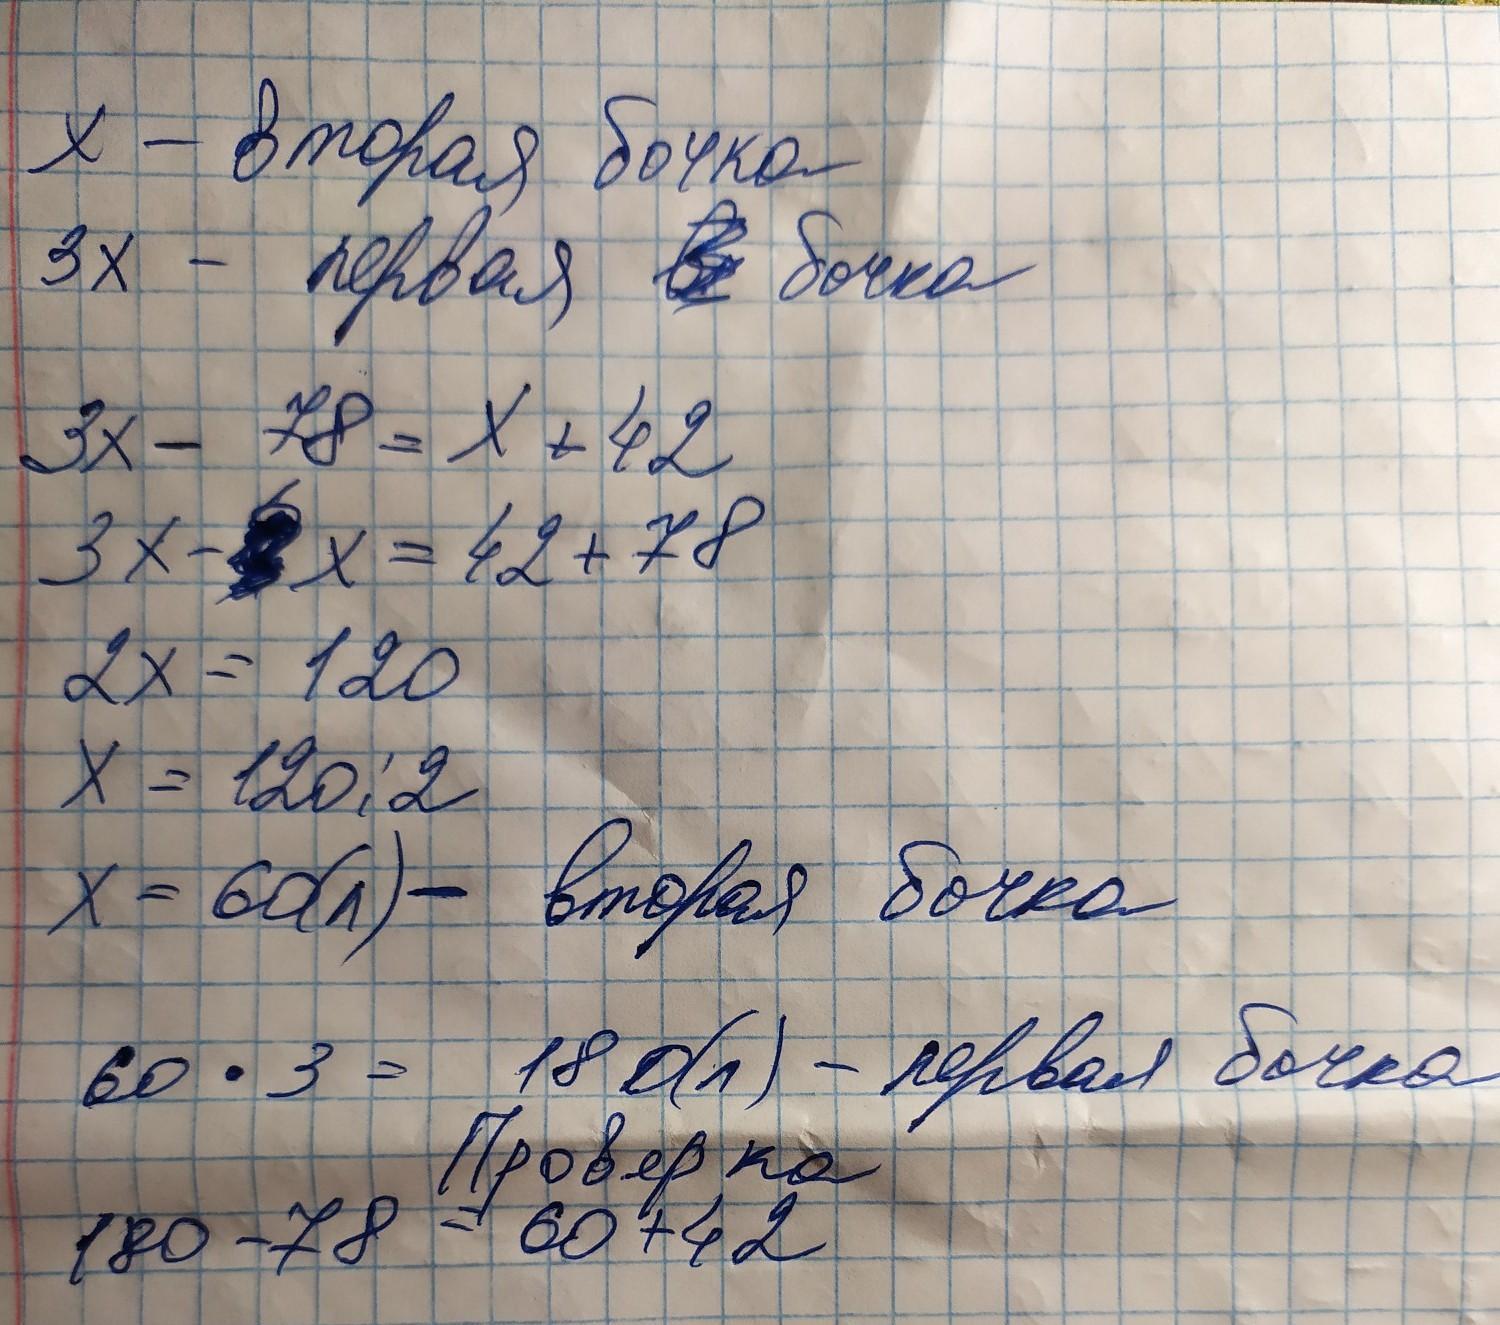 x - вторая бочка
3x - первая бочка
3x - 78 = x + 42
3x - x = 42 + 78
2x = 120
x = 120 : 2
x = 60(л) - вторая бочка
60 · 3 = 180(л) - первая бочка
Проверка
180 - 78 = 60 + 42